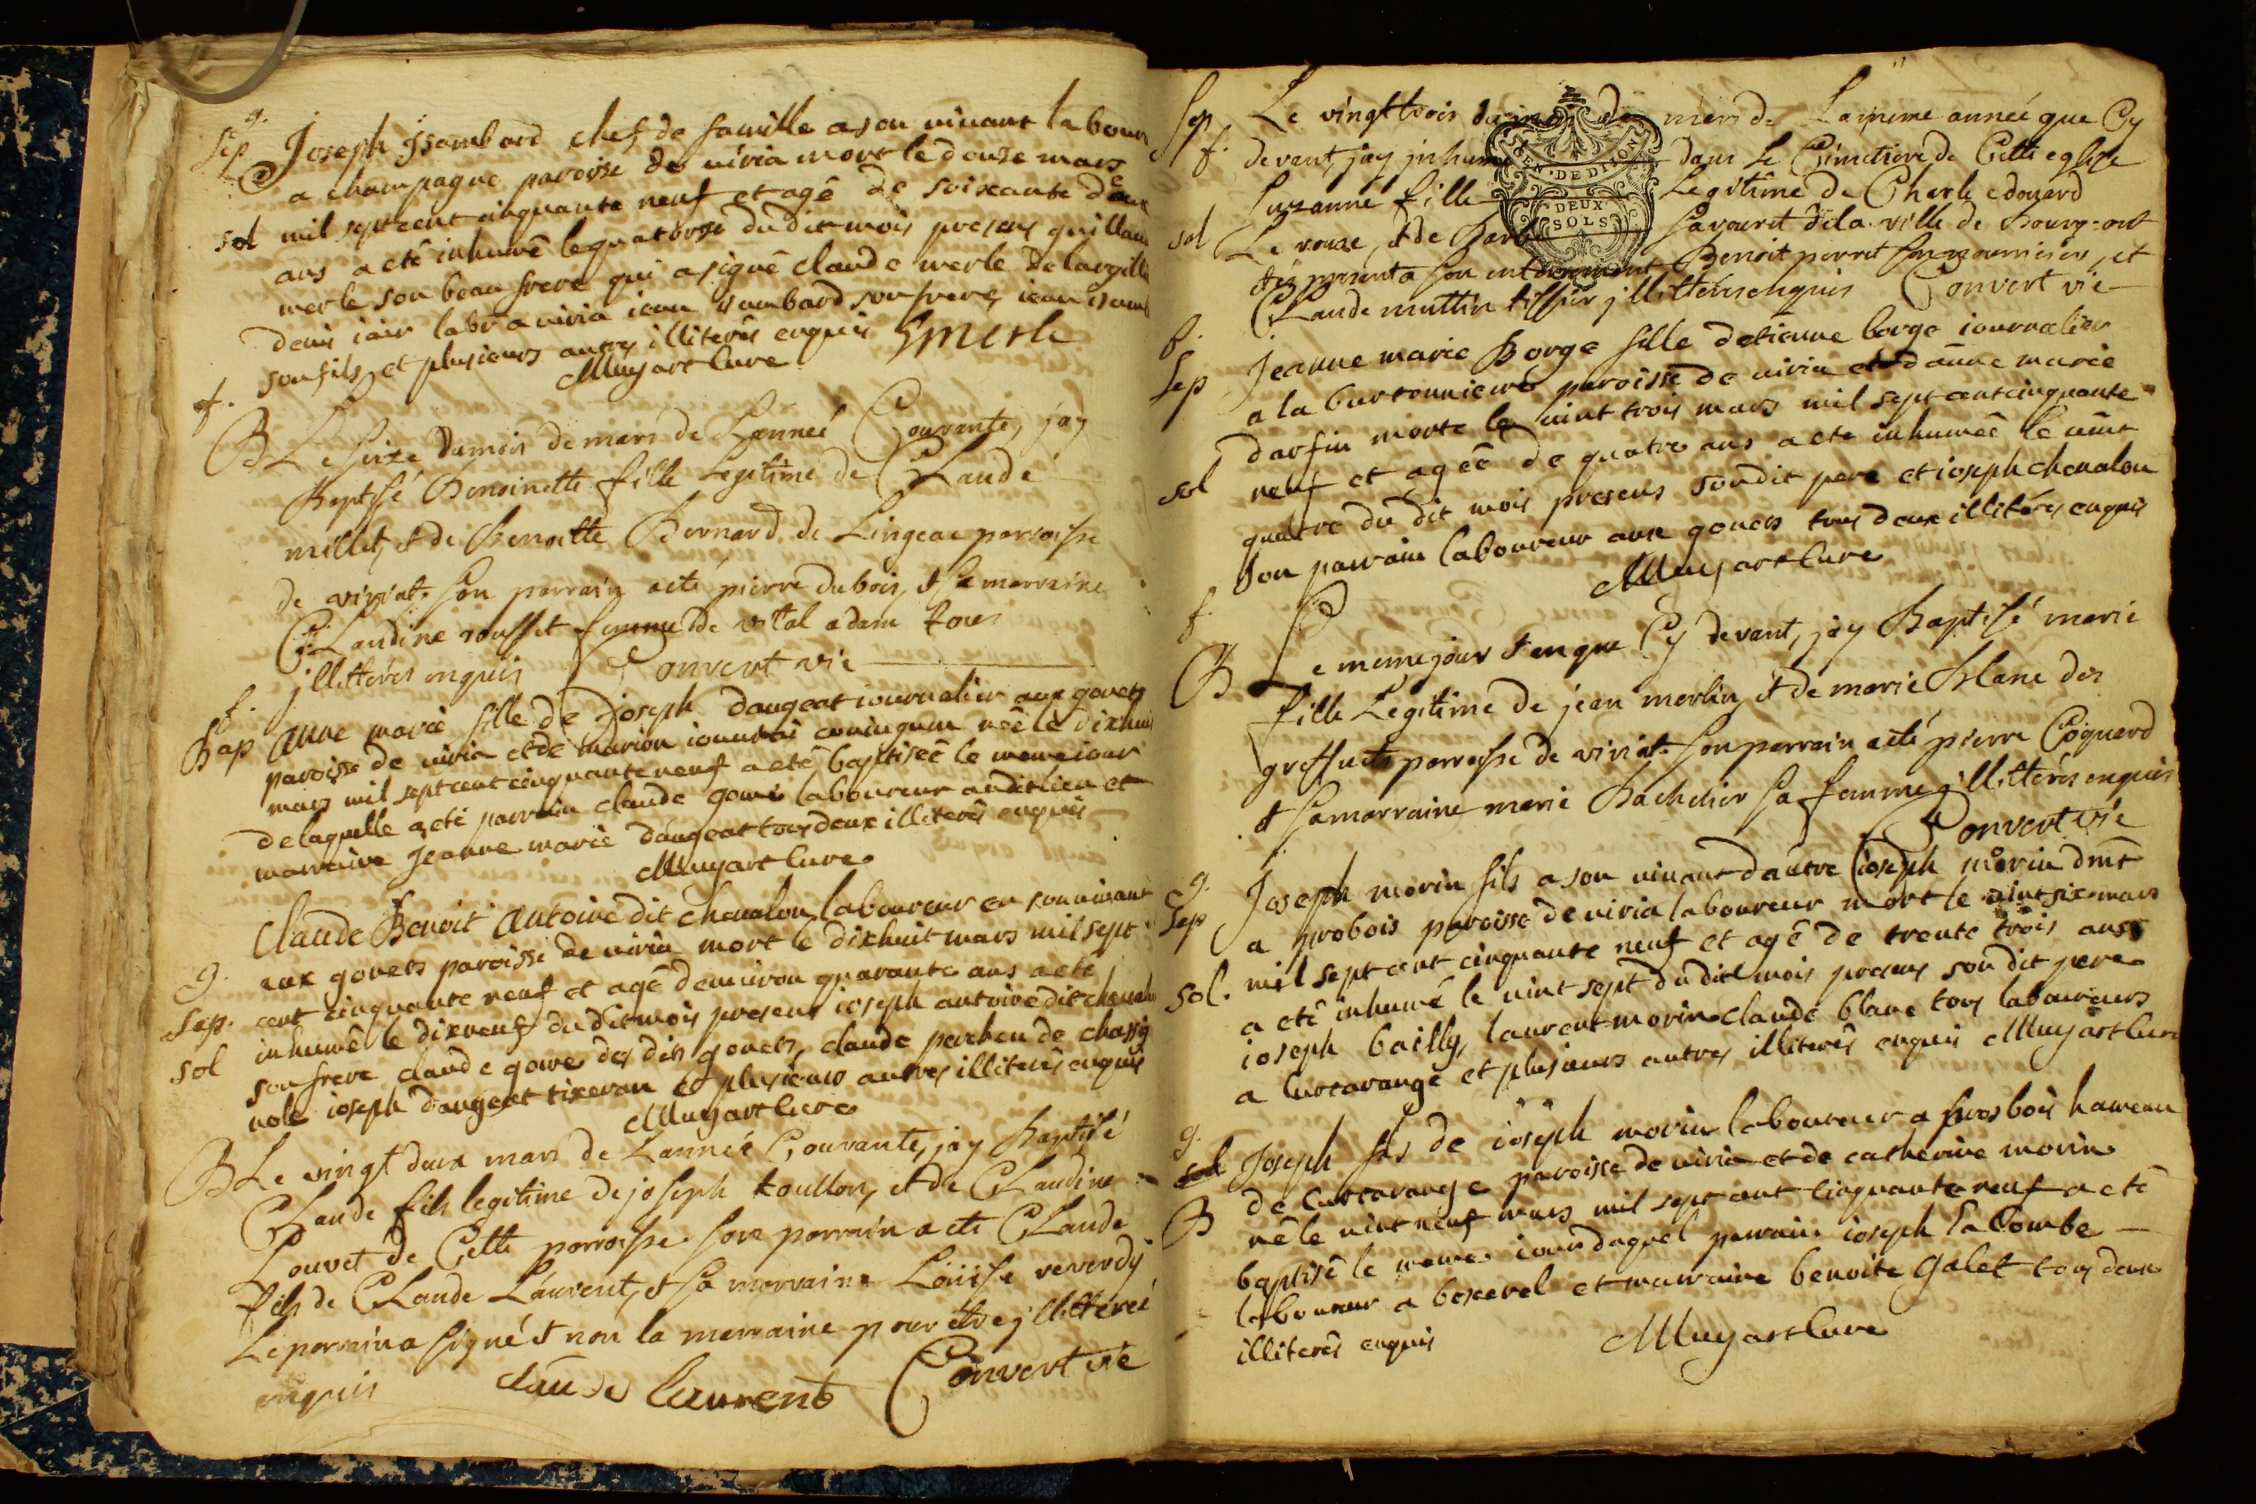 g.
sep Joseph Isambard chef de famille a son vivant labour
a champagne paroisse de viria mort le douze mars
sol mil sept cent cinquante neuf et agé de soixante deux
ans a eté inhumé le quatorze du dit mois presens guillau
merle son beau frere qui a signé claude merle de largille
denis iair labr a viria iean isambard son frere, iean isam
son fils, et plusieurs autres illiterés enquis Gmerle
Muyart Cure
f.
B Le seize du mois de mars de L'anneé Courante, jay
Baptisé Benoinette fille Legitime de CLaude
millet, et de Benoitte Bernard de Lingeae parroisse
de viriat. son parrain a eté pierre dubois, et sa marraine
CLaudine rousset femme de vital adam tous
jllitterés enquis Convert vic
f.
Bap Anne marie fille de Joseph dangeat iournalier aux gouets
paroisse de viria et de marion coninguan neé le dixhuit
mars mil sept cent cinquante neuf a eté baptiseé le meme iour
de laquelle a eté parrain claude goure laboureur audit lieu et
marraine Jeanne marie dangeat tous deux illiterés enquis
Muyart Cure
Claude Benoit Antoine dit chevalon laboureur en son vivant
g. aux gouets paroisse de viria mort le dixhuit mars mil sept
sep. cent cinquante neuf et agé denviron quarante ans a eté
sol inhumé le dixneuf du dit mois presens ioseph antoine dit chevalo
son frere claude goure des dits gouets, claude perben de chassig
nole ioseph dangeat tixeran et plusieurs autres illiterés enquis
Muyart Cure
B Le vingt deux mars de L'année Courante, jay Baptisé
CLaude fils legitime de joseph toullon, et de CLaudine
Louvet de Cette parroisse. son parrain a eté CLaude
fils de CLaude Laurent, et sa marraine Loüise reverdy
Le parrain a signé et non la marraine pour etre jllitterée
enquis claude laurent Convert vic
Sep Le vingt trois du mois de mars de La meme anneé que Cy
f. devant, jay jnhumé dans Le Cimetiere de Cette eglise
Suzanne fille Legitime de Charle edouard
sol Le rouze, et de Barbe savouret de la ville de Bourg: ont
eté presents a son enterrement Benoit perret son nourricier, et
CLaude muttin tissier jllitterés enquis Convert vic
f.
Sep Jeanne marie Borge fille detienne borge iournalier
a la burtonniere paroisse de viria et danne marie
darfin morte le vint trois mars mil sept cent cinquante
sol neuf et ageé de quatre ans a eté inhumeé le vint
quatre du dit mois presens son dit pere et ioseph chevalon
son parrain laboureur aux gouets tous deux illiterés enquis
Muyart Cure
f.
B Le meme jour et an que Cy devant, jay Baptisé marie
fille Legitime de jean merlin, et de marie blanc des
greffets parroisse de viriat. son parrain a eté pierre Coquard
et sa marraine marie Bachelier sa femme jllitterés enquis
Convert vic
g.
Sep Joseph morin fils a son vivant dautre ioseph morin dmt
a prosbois paroisse de viria laboureur mort le vint six mars
mil sept cent cinquante neuf et agé de trente trois ans
sol. a eté inhumé le vint sept du dit mois presens son dit pere
ioseph bailly, laurent morin claude blanc tous laboureurs
a Curtarange et plusieurs autres illiterés enquis Muyart Cure
g.
Joseph fils de ioseph morin laboureur a prosbois hameau
de Curtarange paroisse de viria et de catherine morin
B né le vint neuf mars mil sept cent cinquante neuf a eté
baptisé le meme iour duquel parrain ioseph la Combe
laboureur a boxerel et marraine benoite galet tous deux
illiterés enquis Muyart Cure
GEN. DE DIJON
DEUX
SOLS